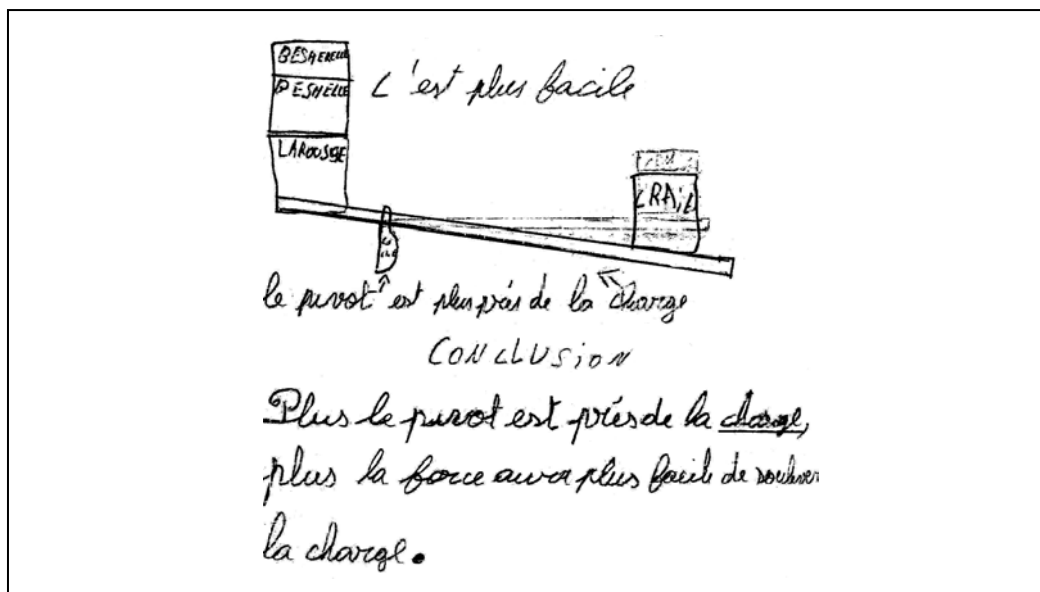 BESHERELLE
BESHELLE
C'est plus facile
LAROUSSE
CRAiE
le pivot est plus près de la charge
CONCLUSiON
Plus le pivot est près de la charge,
plus la force aura plus facile de soulever
la charge.